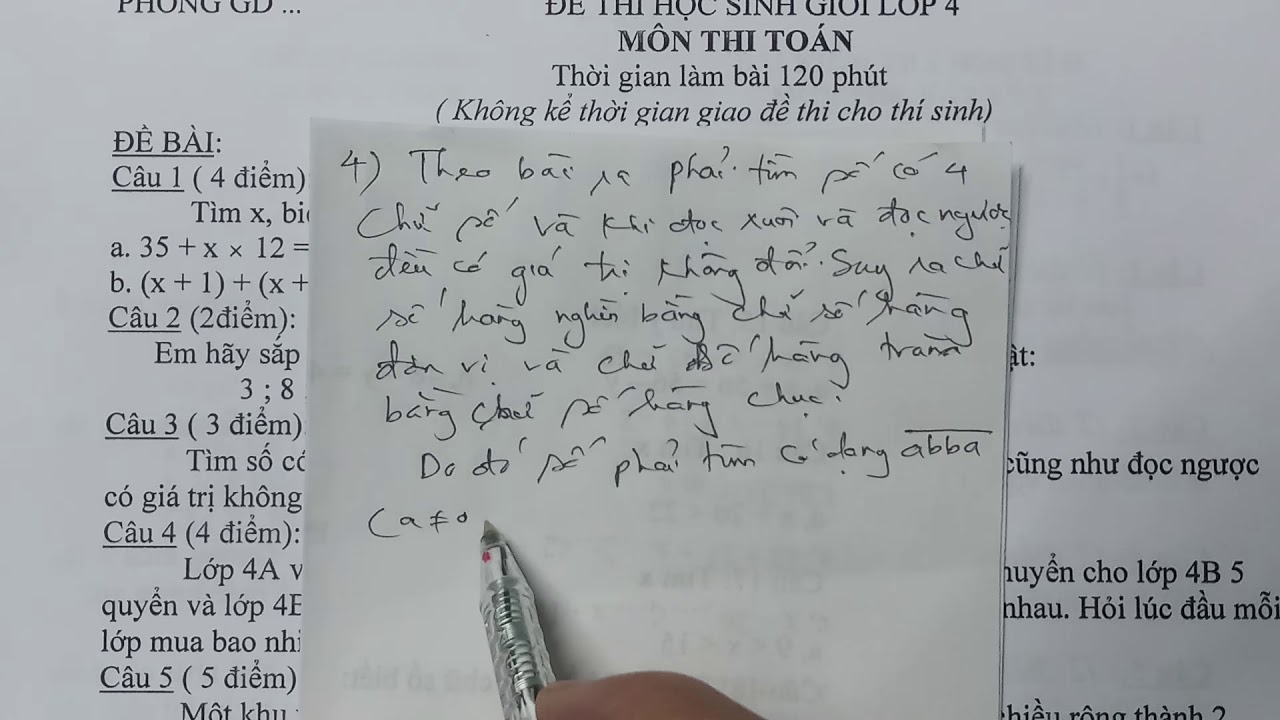 PHÒNG GD ...
ĐỀ THI HỌC SINH GIỎI LỚP 4
MÔN THI TOÁN
Thời gian làm bài 120 phút
( Không kể thời gian giao đề thi cho thí sinh)
ĐỀ BÀI:
Câu 1 ( 4 điểm)
Tìm x, bi
a. 35 + x × 12 =
b. (x + 1) + (x +
Câu 2 (2điểm):
Em hãy sắp
ật:
3 ; 8
Câu 3 ( 3 điểm)
Tìm số có
cũng như đọc ngược
có giá trị không
Câu 4 (4 điểm):
Lớp 4A v
huyển cho lớp 4B 5
quyển và lớp 4B
nhau. Hỏi lúc đầu mỗi
lớp mua bao nhi
Câu 5 ( 5 điểm)
Một khu
chiều rộng thành 2
4) Theo bài ra phải tìm số có 4
chữ số và khi đọc xuôi và đọc ngược
đều có giá trị không đổi. Suy ra chữ
số hàng nghìn bằng chữ số hàng
đơn vị và chữ số hàng trăm
bằng chữ số hàng chục.
Do đó số phải tìm có dạng abba
(a ≠ 0